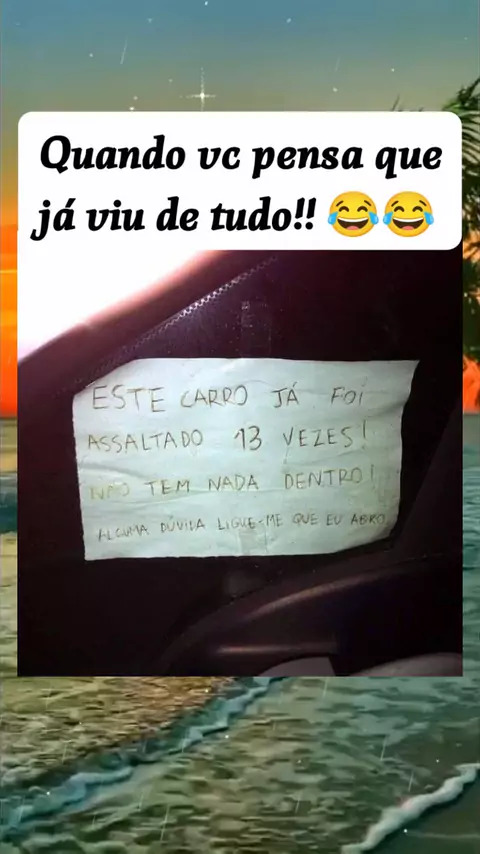 Quando vc pensa que
já viu de tudo!! 😂😂
ESTE CARRO JÁ FOI
ASSALTADO 13 VEZES!
NÃO TEM NADA DENTRO!
ALGUMA DÚVIDA LIGUE-ME QUE EU ABRO